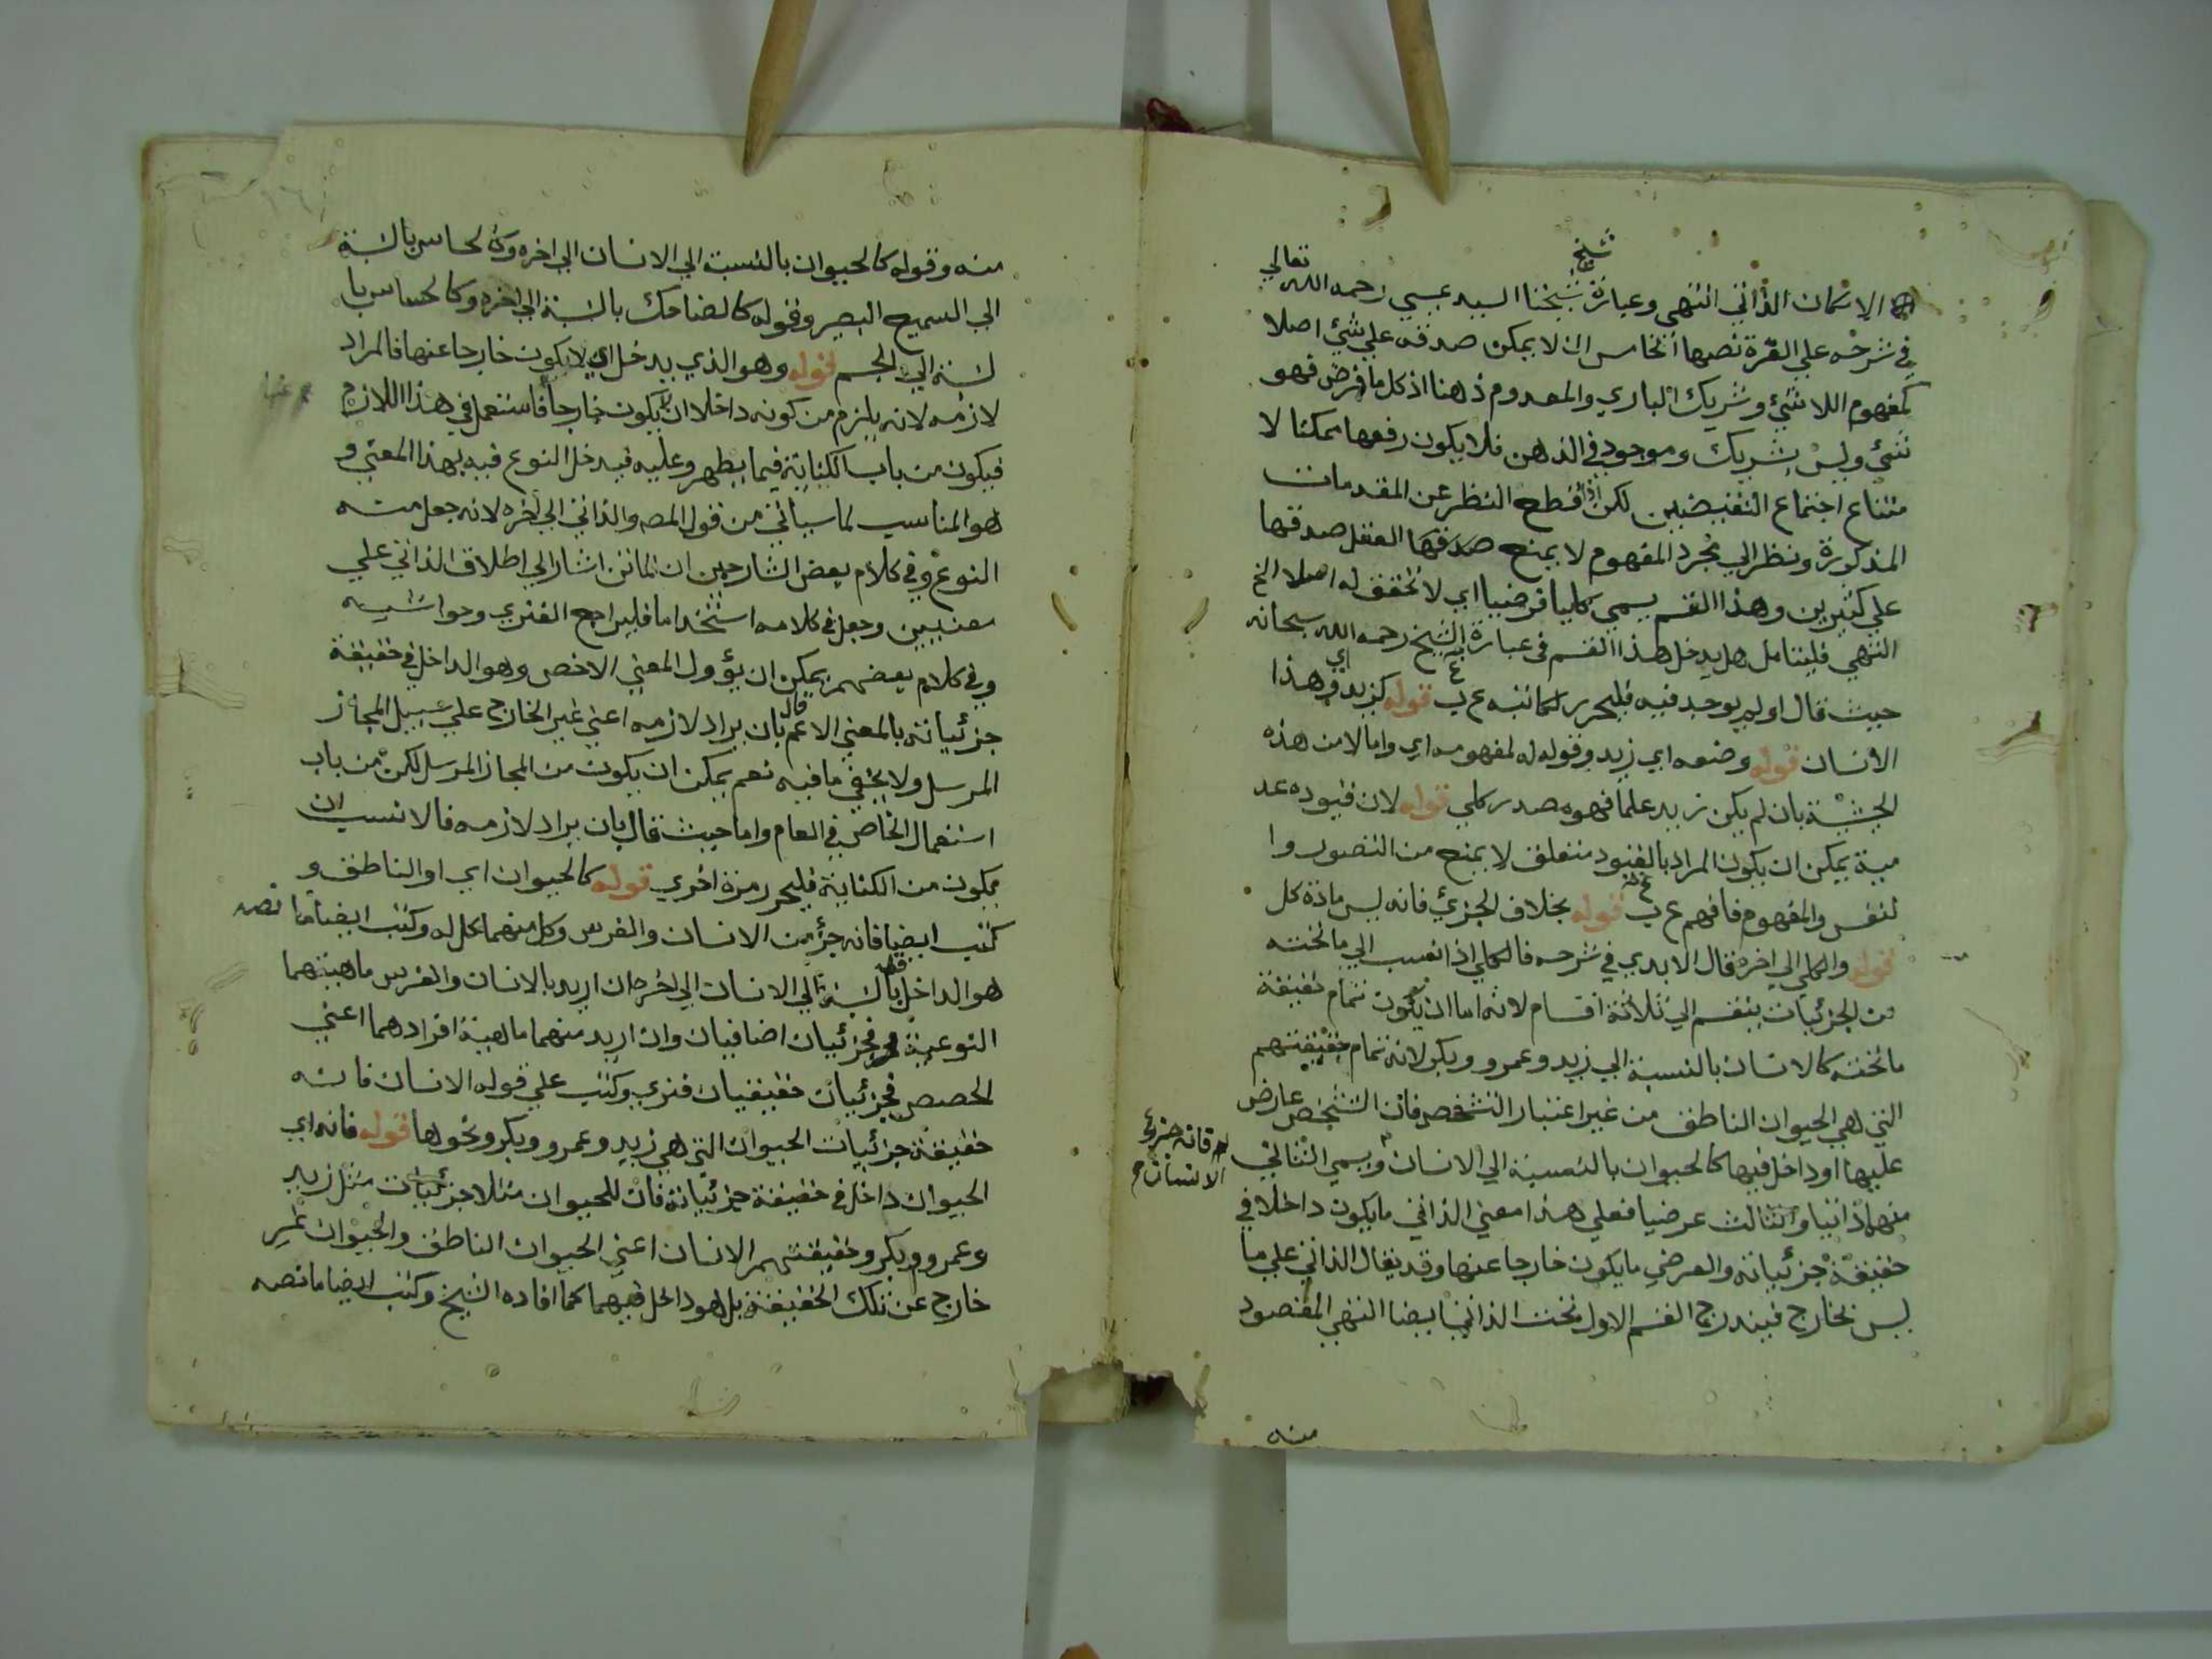 الامكان الذاتي انتهى وعبارة شيخ شيخنا السيد عيسى رحمه الله تعالى
في شرحه على الغرة نصها الخامس ان لا يمكن صدقه على شئ اصلا
كمفهوم اللا شئ وشريك الباري والمعدوم ذهنا اذ كل ما فرض فهو
شئ وليس بشريك وموجود في الذهن فلا يكون رفعها ممكنا لا
متناع اجتماع النقيضين لكن اذا قطع النظر عن المقدمات
المذكورة ونظر الى مجرد المفهوم لا يمنع العقل صدقها
على كثيرين وهذا القسم يسمى كليا فرضيا اي لا تحقق له اصلا الخ
انتهى فليتامل هل يدخل هذا القسم في عبارة الشيخ رحمه الله سبحانه
حيث قال او لم يوجد فيه فليحرر لكاتبه ع ب قوله كزيد اي وهذا
الانسان قوله وضعه اي زيد وقوله له لمفهومه اي واما لا من هذه
الحيثية بان لم يكن زيد علما فهوه مصدر كلي قوله لان قيوده عد
مية يمكن ان يكون المراد بالقيود متعلق لا يمنع من التصور وا
لنفس والمفهوم فافهم ع ب قوله بخلاف الجزئي فانه ليس مادة كل
قوله والكلي الى اخره قال الابدي في شرحه فالكلي اذا نسب الى ما تحته
من الجزئيات ينقسم الى ثلاثة اقسام لانه اما ان يكون تمام حقيقة
ما تحته كالانسان بالنسبة الى زيد وعمرو وبكر لانه تمام حقيقتهم
التي هي الحيوان الناطق من غير اعتبار التشخص فان التشخص عارض
عليها او داخل فيها كالحيوان بالنسبة الى الانسان ويسمى الثاني
فانه جزء
الانسان
منهما ذاتيا والثالث عرضيا فعلى هذا معنى الذاتي ما يكون داخلا في
حقيقة جزئياته والعرضي ما يكون خارجا عنها وقد يقال الذاتي على ما
ليس بخارج فيندرج القسم الاول تحت الذاتي ايضا انتهى المقصود
منه
منه وقوله كالحيوان بالنسبة الى الانسان الى اخره وكالحاس بالنسبة
الى السميع البصير وقوله كالضاحك بالنسبة الى اخره وكالحساس با
لنسبة الى الجسم قوله وهو الذي يدخل اي لا يكون خارجا عنها فالمراد
لازمه لانه يلزم من كونه داخلا ان لا يكون خارجا فاستعمل في هذا اللازم
فيكون من باب الكناية فيما يظهر وعليه فيدخل النوع فيه بهذا المعنى و
هو المناسب لما سياتي من قول المصـ والذاتي الى اخره لانه جعل منه
النوع وفي كلام بعض الشارحين ان الماتن اشار الى اطلاق الذاتي على
معنيين وجعل في كلامه استخداما فليراجع الفنري وحواشيه
وفي كلام بعضهم يمكن ان يؤول المعنى الاخص وهو الداخل في حقيقة
جزئياته بالمعنى الاعم قال بان يراد لازمه اعني غير الخارج على سبيل المجاز
المرسل ولا يخفى ما فيه نعم يمكن ان يكون من المجاز المرسل لكن من باب
استعمال الخاص في العام واما حيث قال بان يراد لازمه فالانسب ان
يكون من الكناية فليحرر مرة اخرى قوله كالحيوان اي او الناطق و
كتب ايضا فانه جزء من الانسان والفرس وكل منهما كل له وكتب ايضا ما نصه
هو الداخل قوله بالنسبة الى الانسان الى اخره ان اريد بالانسان والفرس ماهيتهما
النوعية فجزئيان اضافيان وان اريد منهما ماهية افرادهما اعني
الحصص فجزئيان حقيقيان فنري وكتب على قوله الانسان فانه
حقيقة جزئيات الحيوان التي هي زيد وعمرو وبكر ونحوها قوله فانه اي
الحيوان داخل في حقيقة جزئياته فان للحيوان مثلا جزئيات مثل زيد
وعمرو وبكر وحقيقتهم الانسان اعني الحيوان الناطق والحيوان غير
خارج عن تلك الحقيقة بل هو داخل فيهما كما افاده الشيخ وكتب ايضا ما نصه